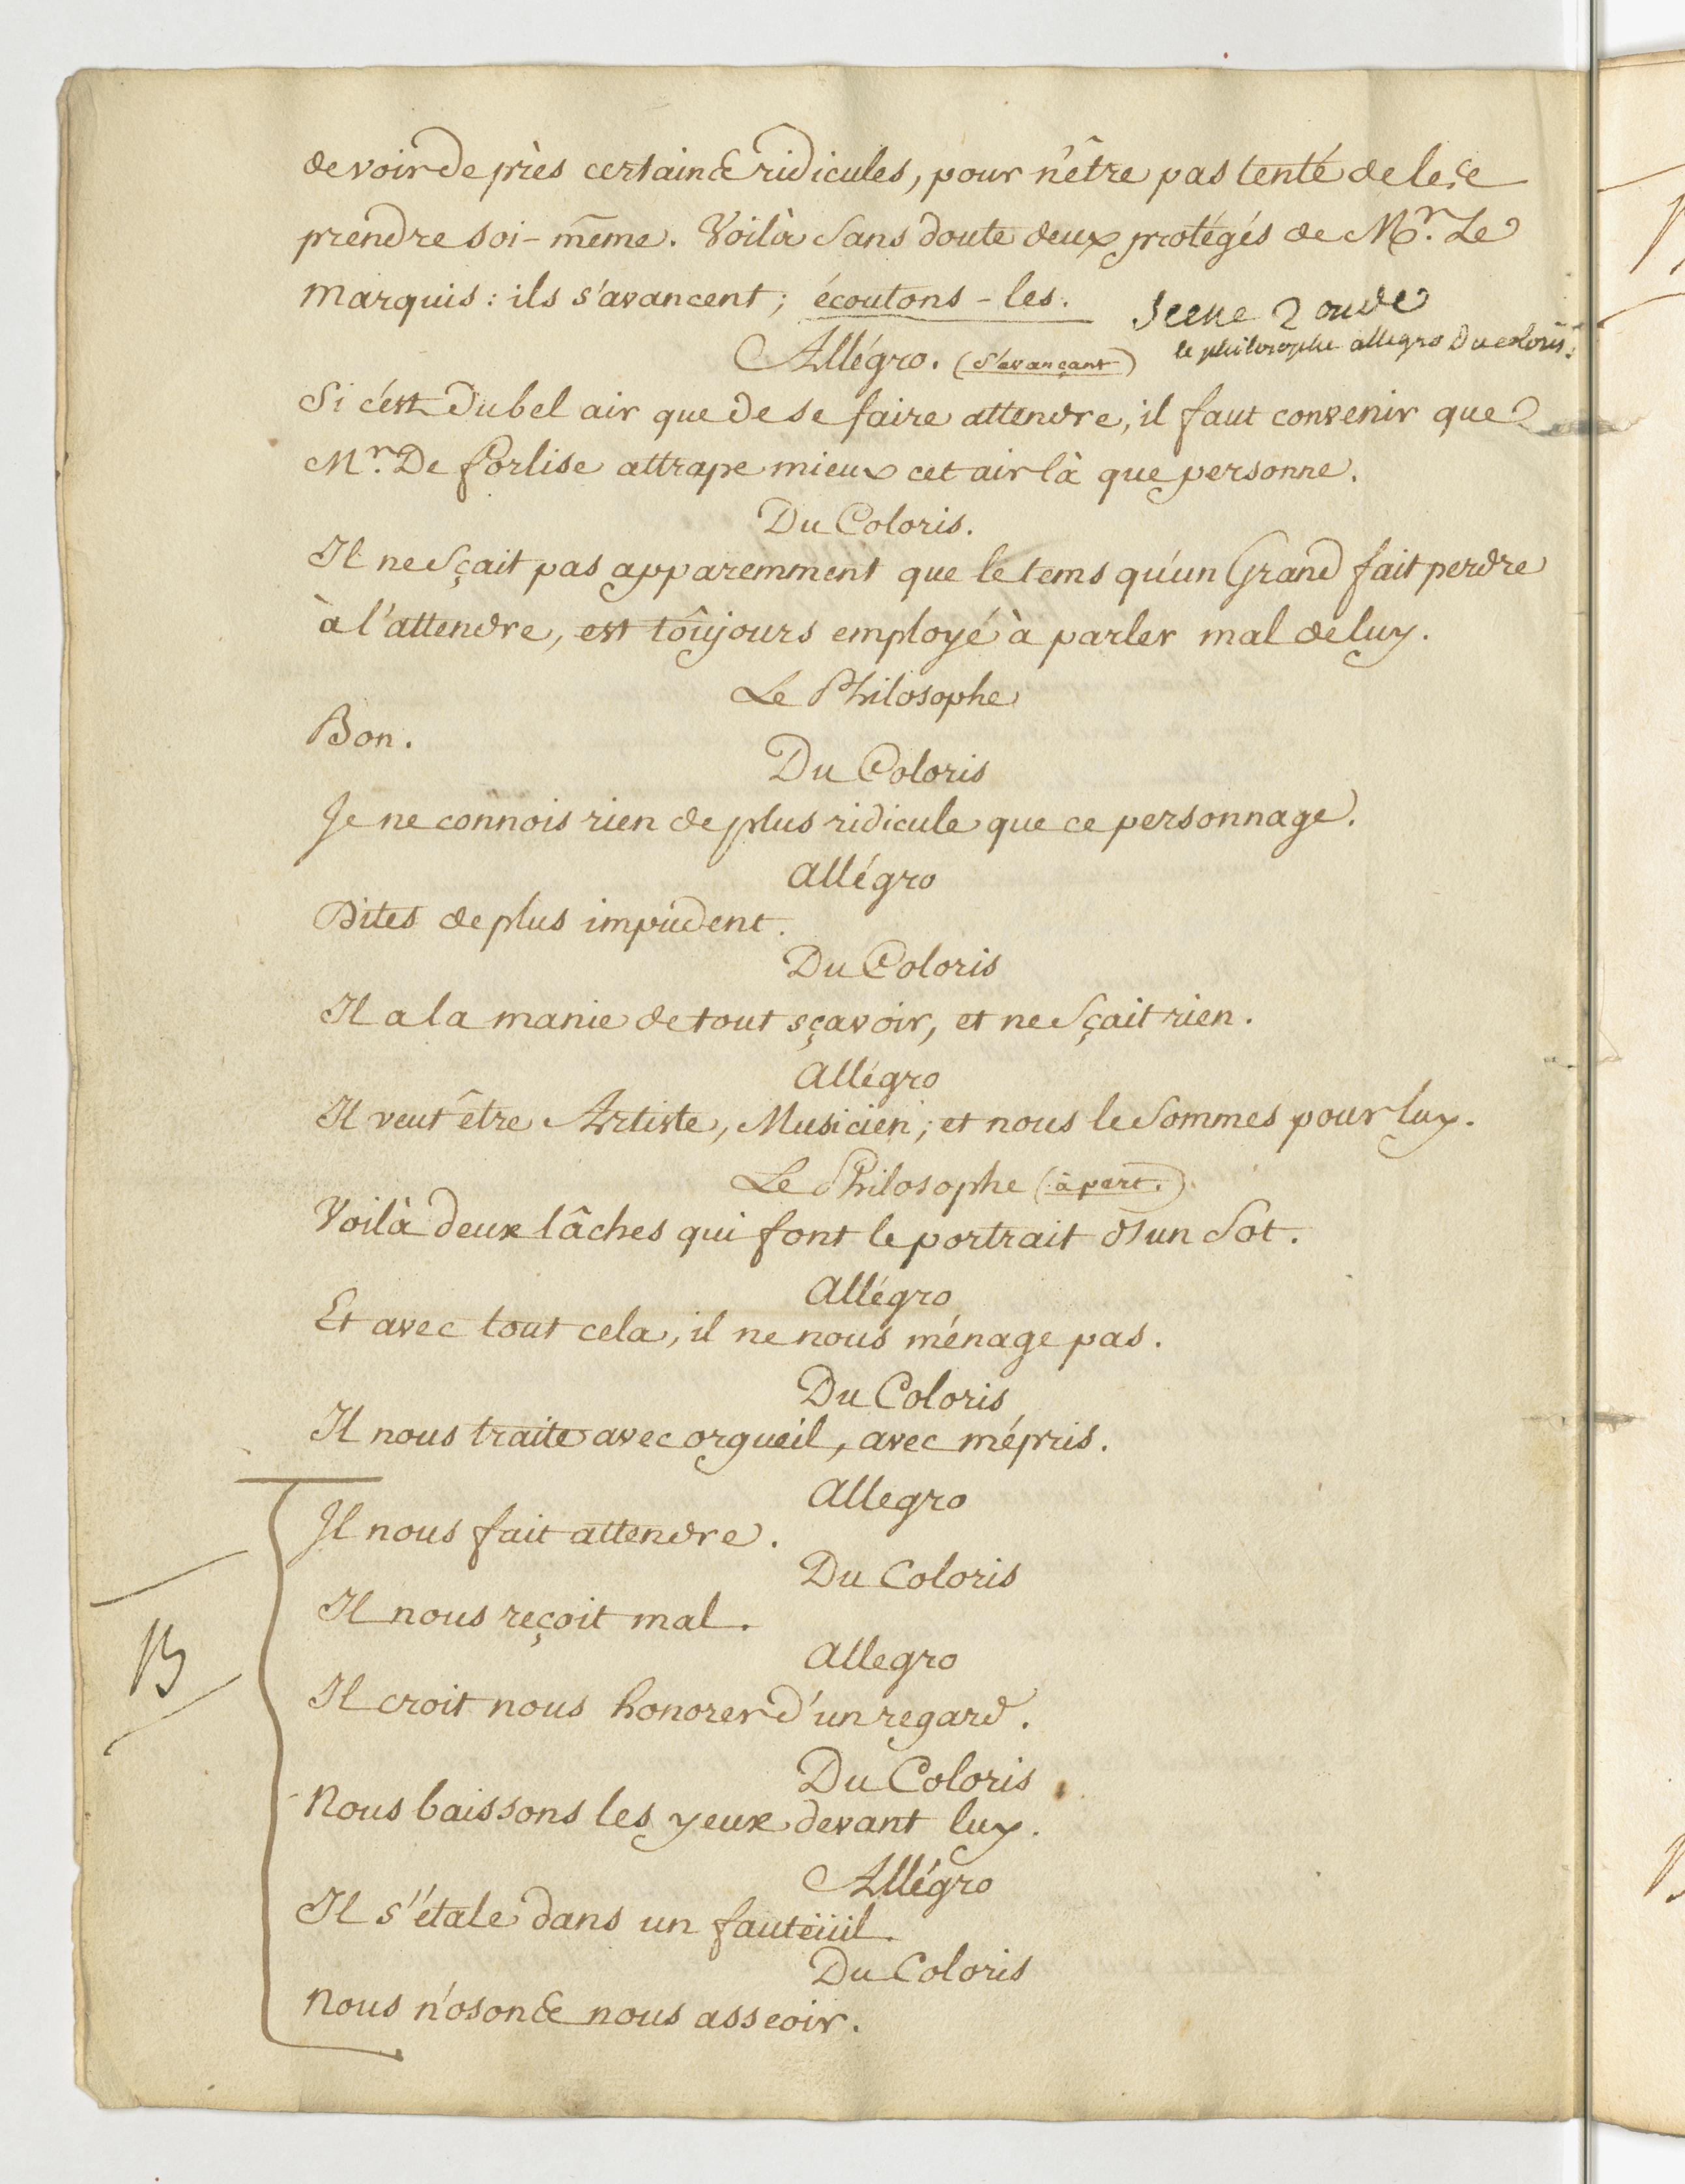 de voir de près certains ridicules, pour n'être pas tenté de les
prendre soi-même. Voilà sans doute deux protégés de Mr. Le
Marquis : ils s'avancent ; écoutons-les.
Scene 2 onde
le philosophe allegro Du coloris.
Allégro. (s'avançant)
Si c'est du bel air que de se faire attendre, il faut convenir que
Mr. De forlise attrape mieux cet air là que personne.
Du Coloris.
Il ne sçait pas apparemment que le tems qu'un Grand fait perdre
à l'attendre, est toûjours employé à parler mal de luy.
Le Philosophe
Bon.
Du Coloris
Je ne connois rien de plus ridicule que ce personnage.
Allégro
Dites de plus impudent.
Du Coloris
Il a la manie de tout sçavoir, et ne sçait rien.
Allégro
Il veut être Artiste, Musicien ; et nous le sommes pour luy.
Le Philosophe (à part.)
Voilà deux lâches qui font le portrait d'un sot.
Allégro
Et avec tout cela, il ne nous ménage pas.
Du Coloris
Il nous traite avec orgueil, avec mépris.
Allegro
Il nous fait attendre.
Du Coloris
Il nous reçoit mal.
B
Allegro
Il croit nous honorer d'un regard.
Du Coloris
Nous baissons les yeux devant luy.
Allégro
Il s'étale dans un fauteüil.
Du Coloris
Nous n'osons nous asseoir.